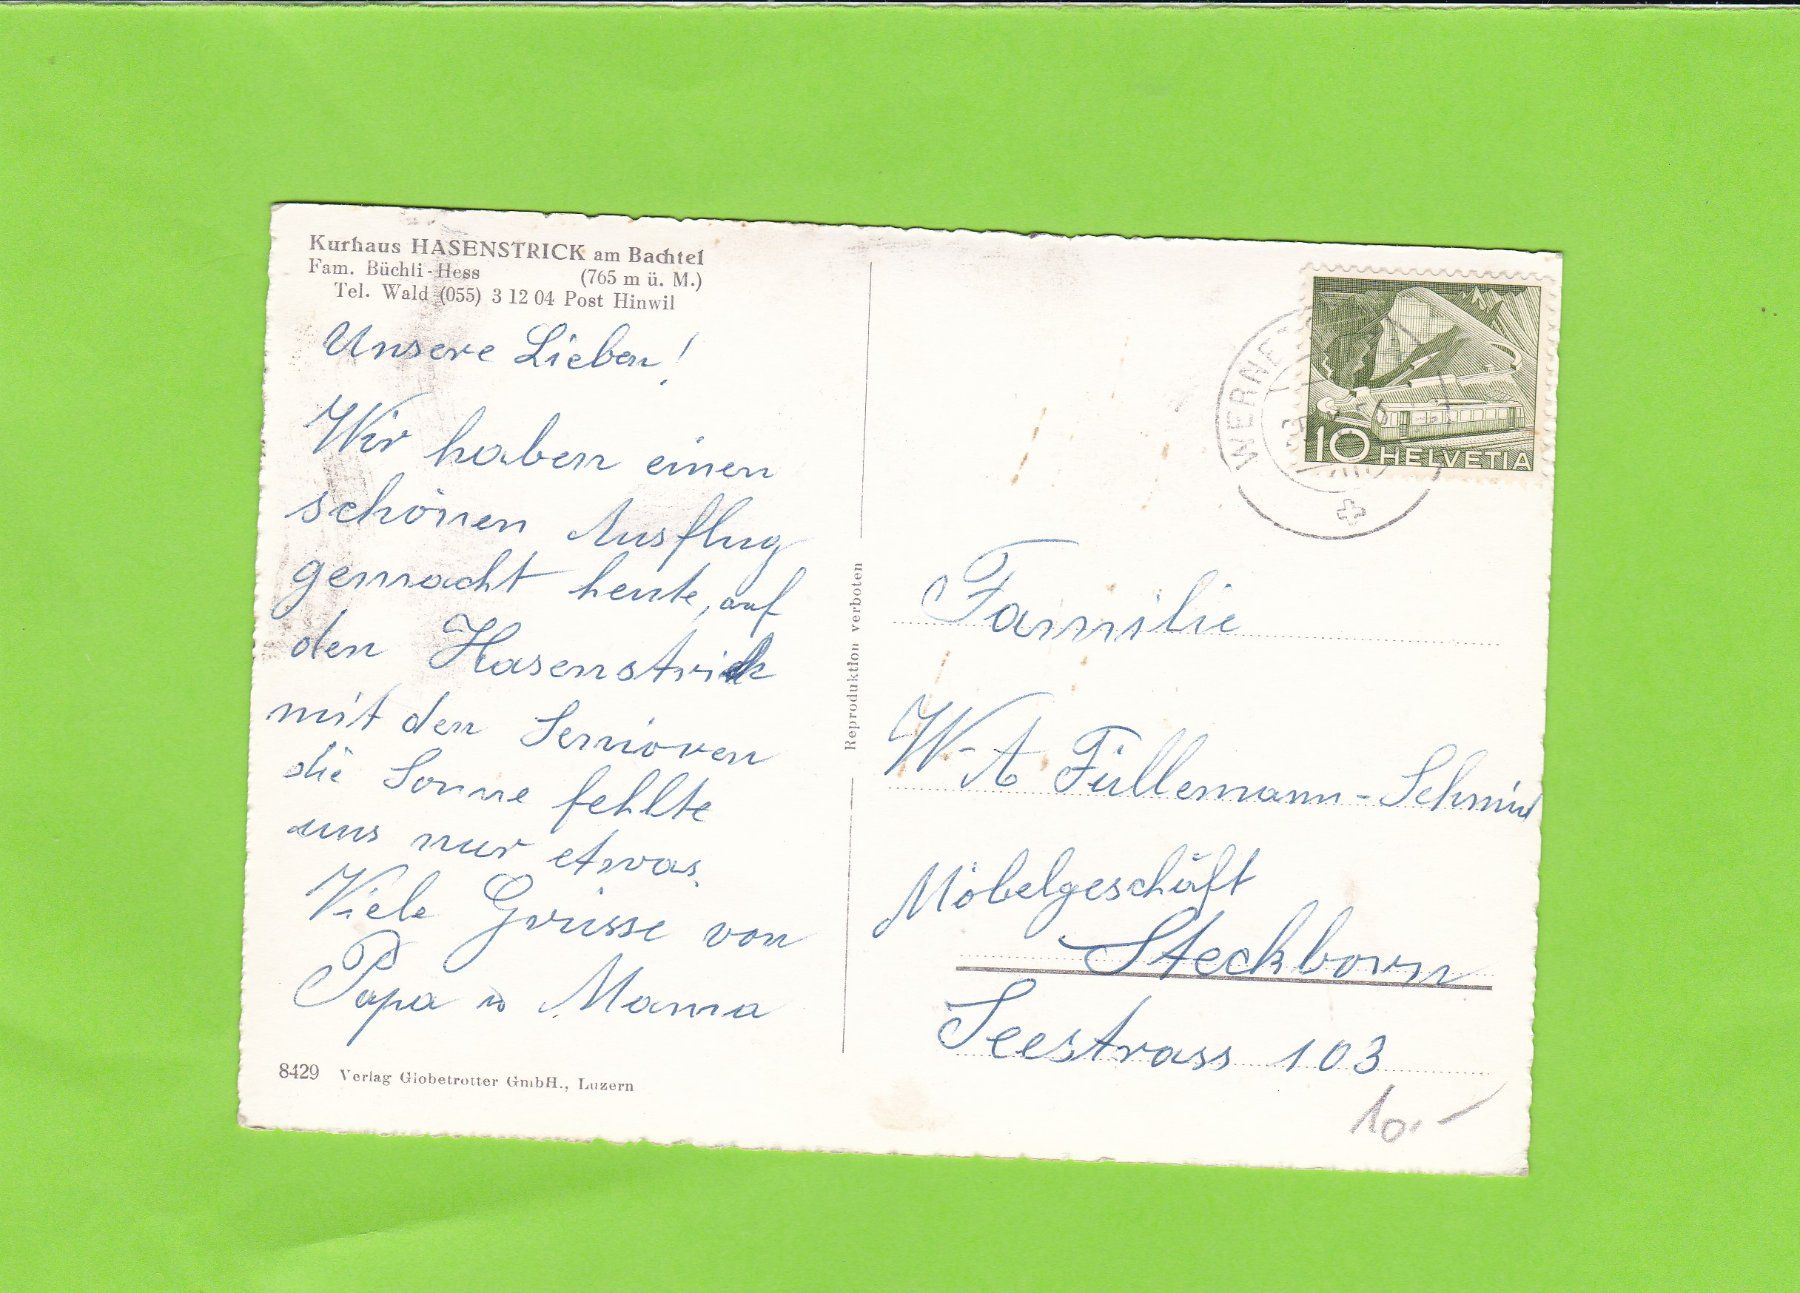 Kurhaus HASENSTRICK am Bachtel
Fam. Büchli-Hess (765 m ü. M.)
Tel. Wald (055) 3 12 04 Post Hinwil
Unsere Lieben!
Wir haben einen
schönen Ausflug
gemacht heute, auf
den Hasenstrick
mit den Senioren
die Sonne fehlte
uns nur etwas.
Viele Grüsse von
Papa u Mama
8429 Verlag Globetrotter GmbH., Luzern
Reproduktion verboten
10 HELVETIA
Familie
W-A Füllemann-Schmid
Möbelgeschäft
Steckborn
Seestrass 103
10.-